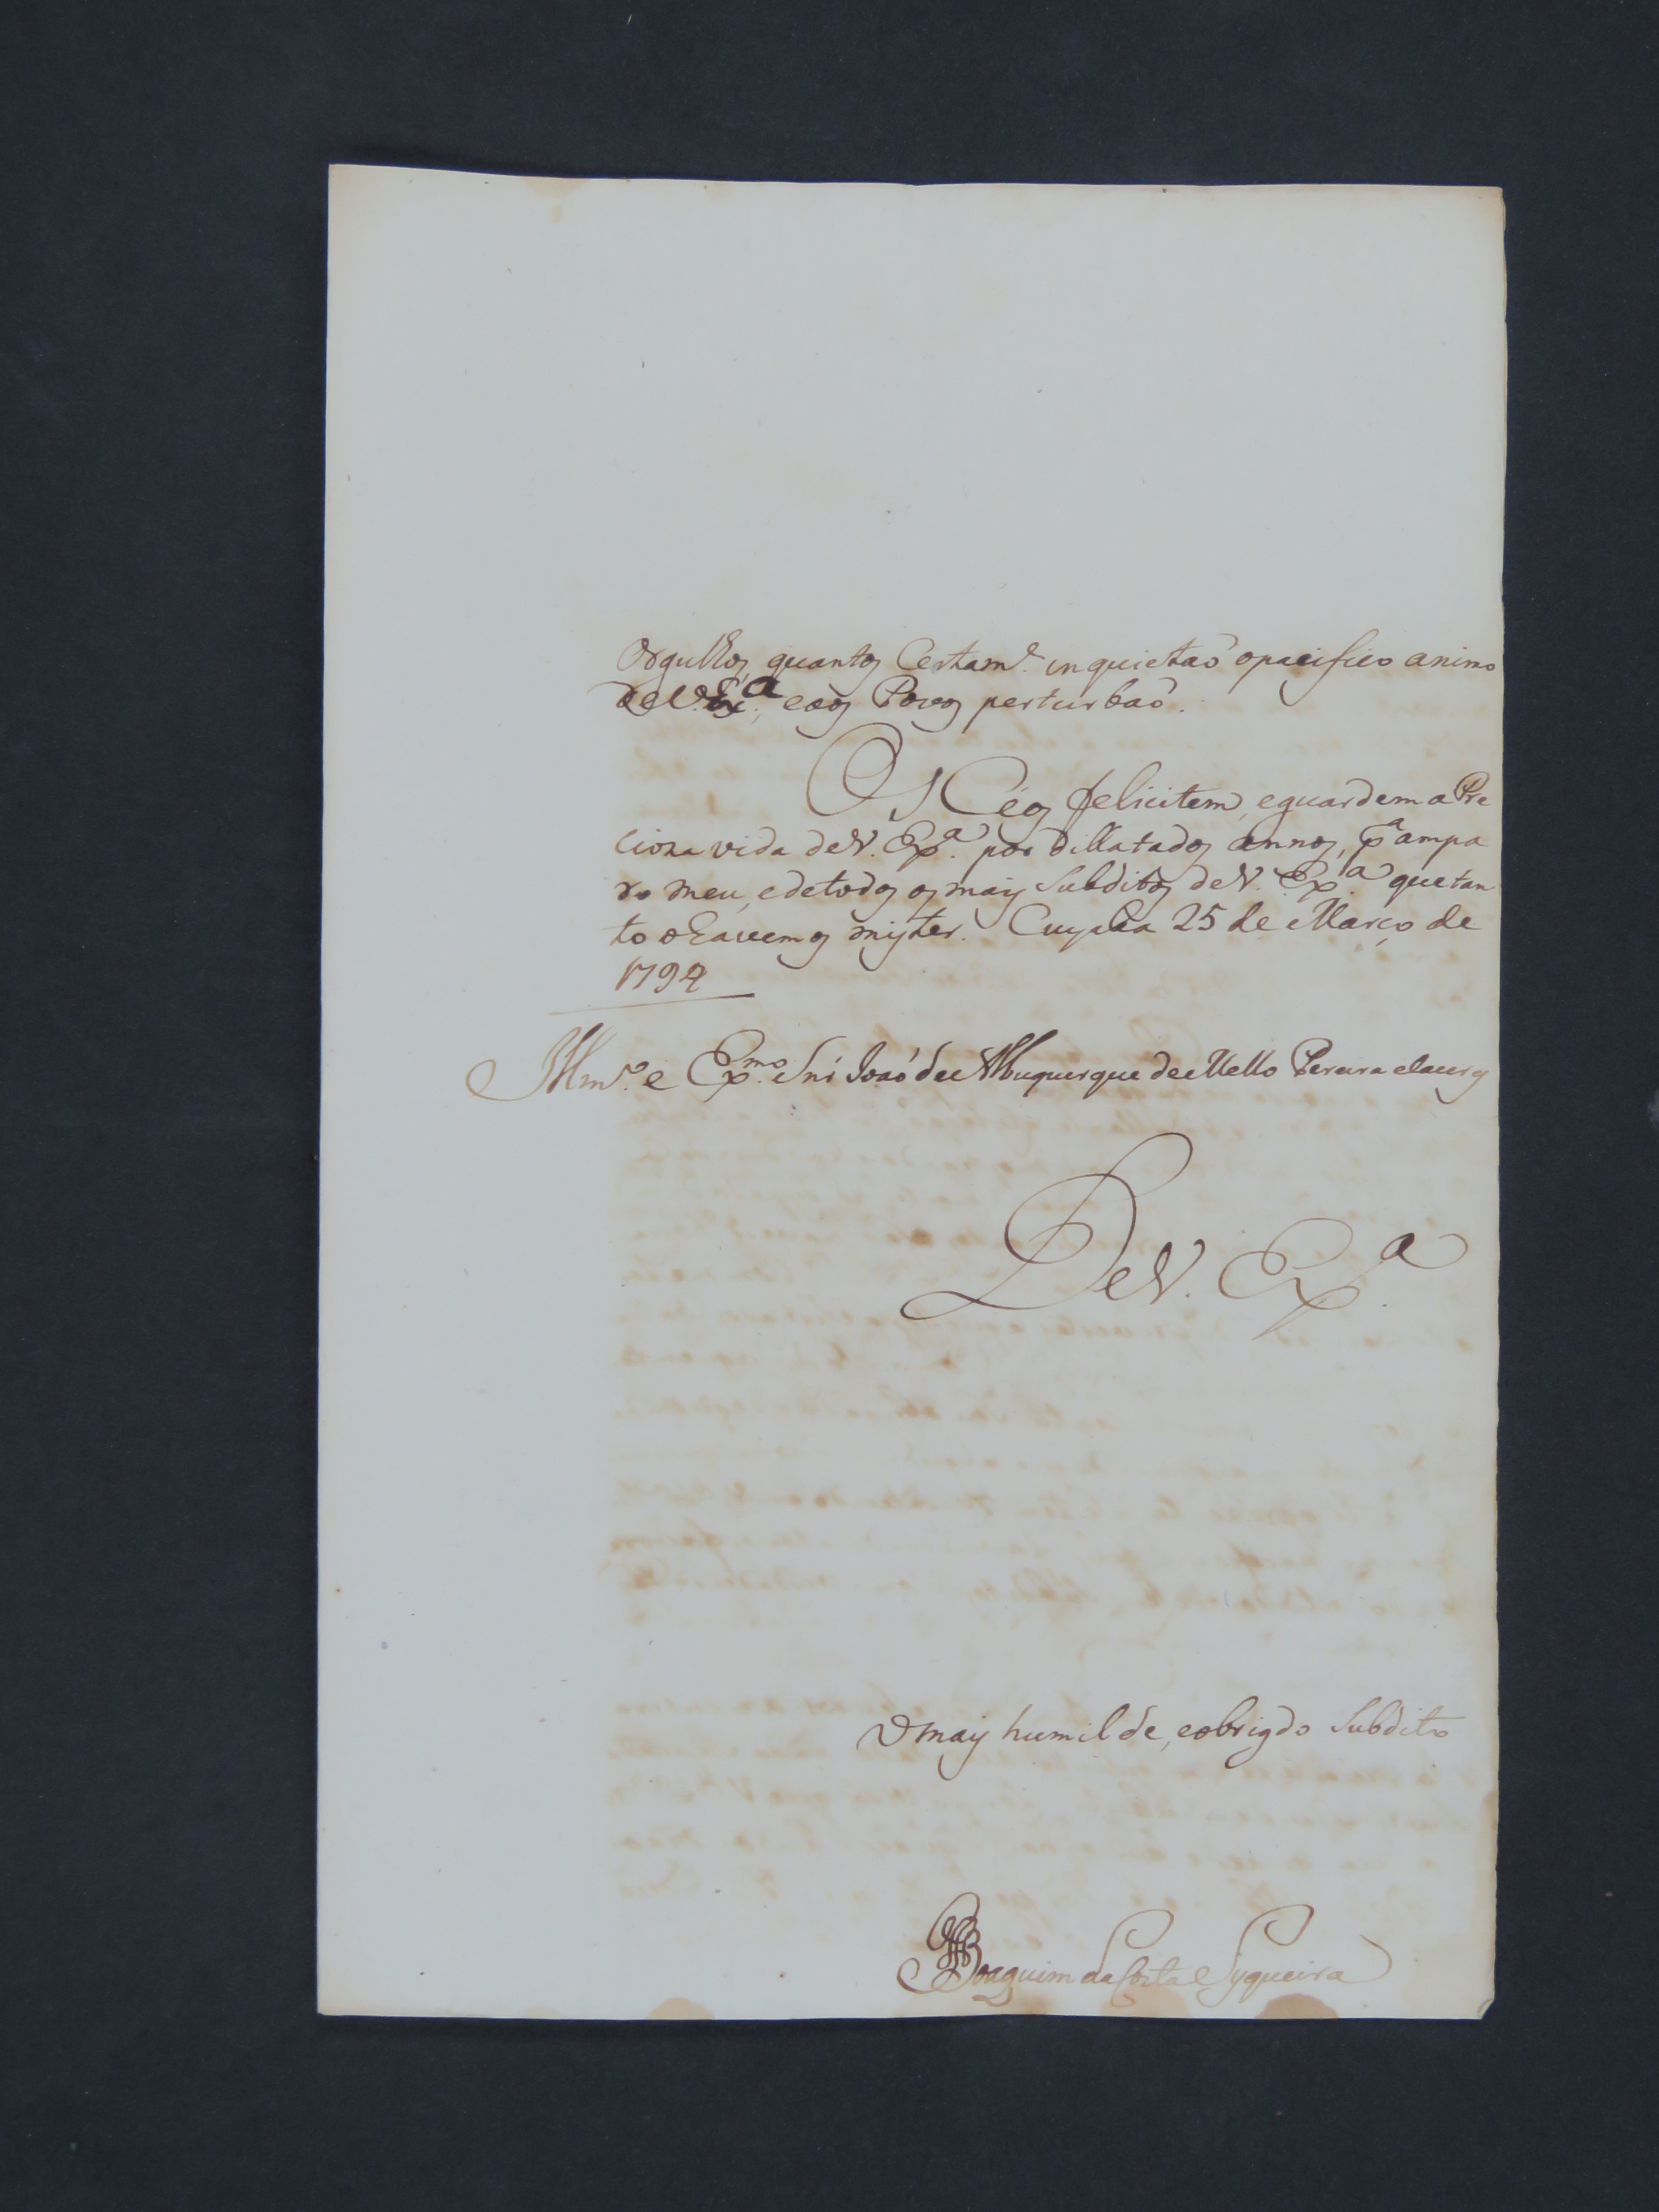 Orgulhos, quantos Certam.e inquietaõ opacifico animo
deV. Ex.a, eaos Povos perturbaõ.
Os Céos felicitem, eguardem a Pre
cioza vida deV. Exª. por dillatados annos, pª ampa
ro meu, edetodos os mais Subditos deV. Exª. que tan
to o havemos mister. Cuyaba 25 de Março de
1794
Illmº. e Exmº. Snr Joaõ de Albuquerque de Mello Pereira eCaceres
DeV. Exª.
O mais humilde, eobrigdo Subdito
Joaquim da Costa Syqueira